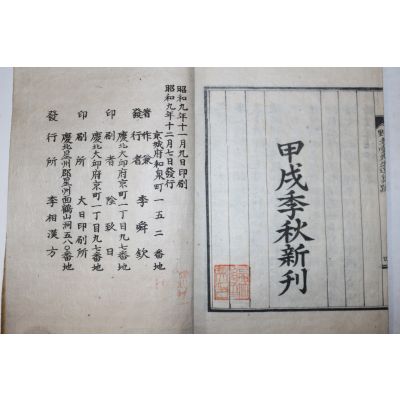 甲戌季秋新刊
昭和九年十一月九日印刷
昭和九年十二月七日發行
京城府和泉町一五二番地
著作兼發行者 李舜欽
慶北大邱府京町一丁目九七番地
印刷者 陰致日
慶北大邱府京町一丁目九七番地
印刷所 大日印刷所
慶北星州郡星州面鶴山洞五八〇番地
發行所 李相漢方